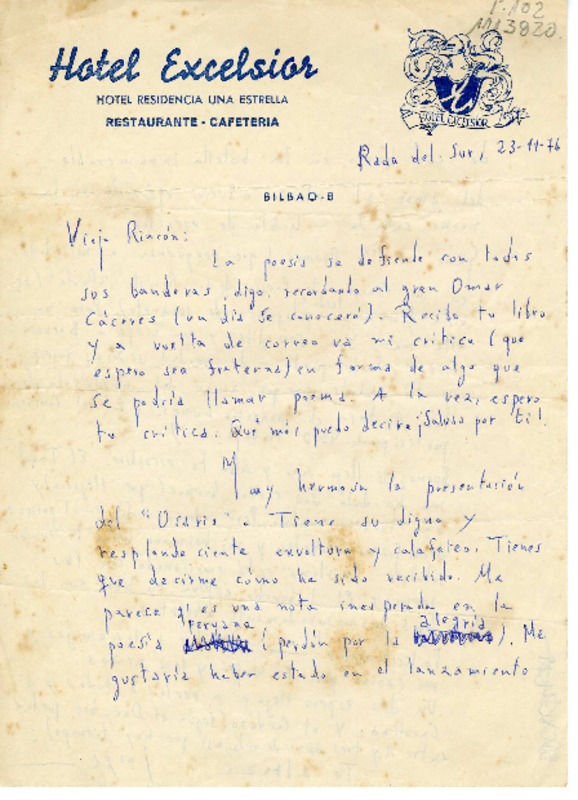 113820.
Hotel Excelsior
HOTEL RESIDENCIA UNA ESTRELLA
RESTAURANTE - CAFETERIA
HOTEL EXCELSIOR
Rada del Sur, 23-11-76
BILBAO-8
Viejo Rincón:
La poesía se defiende con todas
sus banderas, digo, recordando al gran Omar
Cáceres (un día se conocerá). Recibo tu libro
y a vuelta de correo va mi crítica (que
espero sea fraterna) en forma de algo que
se podría llamar poema. A la vez, espero
tu crítica. Qué más puedo decirte ¡Salvaso por ti!
Muy hermosa la presentación
del "Osaris". Tiene su digna y
resplandeciente envoltura y calafateo. Tienes
que decirme cómo ha sido recibido. Me
parece q' es una nota inesperada en la
poesía peruana (perdón por la alegría). Me
gustaría haber estado en el lanzamiento